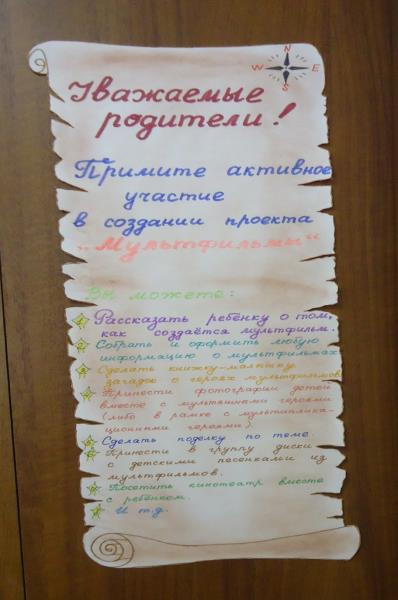 N
W E
S
Уважаемые
родители!
Примите активное
участие
в создании проекта
„Мультфильмы“
Вы можете:
Рассказать ребёнку о том,
как создаётся мультфильм.
Собрать и оформить любую
информацию о мультфильмах
Сделать книжку-малышку
загадок о героях мультфильмов
Принести фотографии детей
вместе с мультяшными героями
(либо в рамке с мультиплика-
ционными героями).
Сделать поделку по теме.
Принести в группу диски
с детскими песенками из
мультфильмов.
Посетить кинотеатр вместе
с ребёнком.
И т.д.